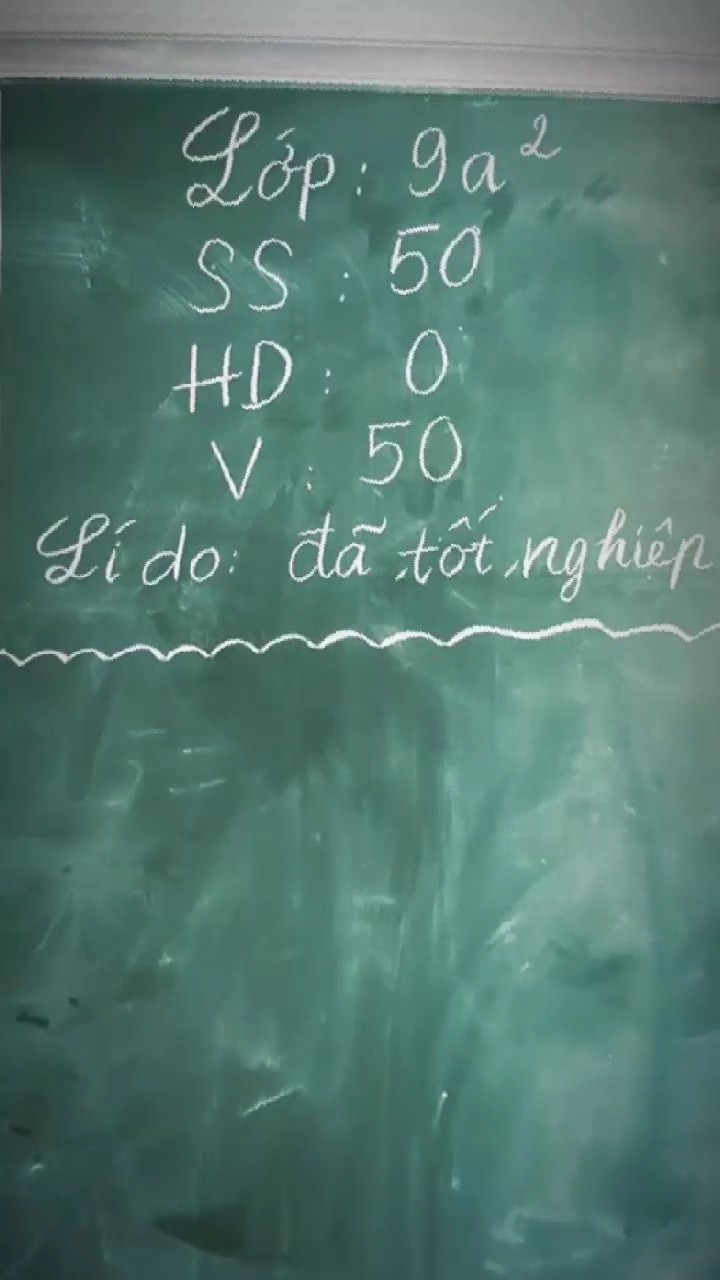 Lớp: 9a²
SS: 50
HD: 0
V: 50
Lí do: đã tốt nghiệp